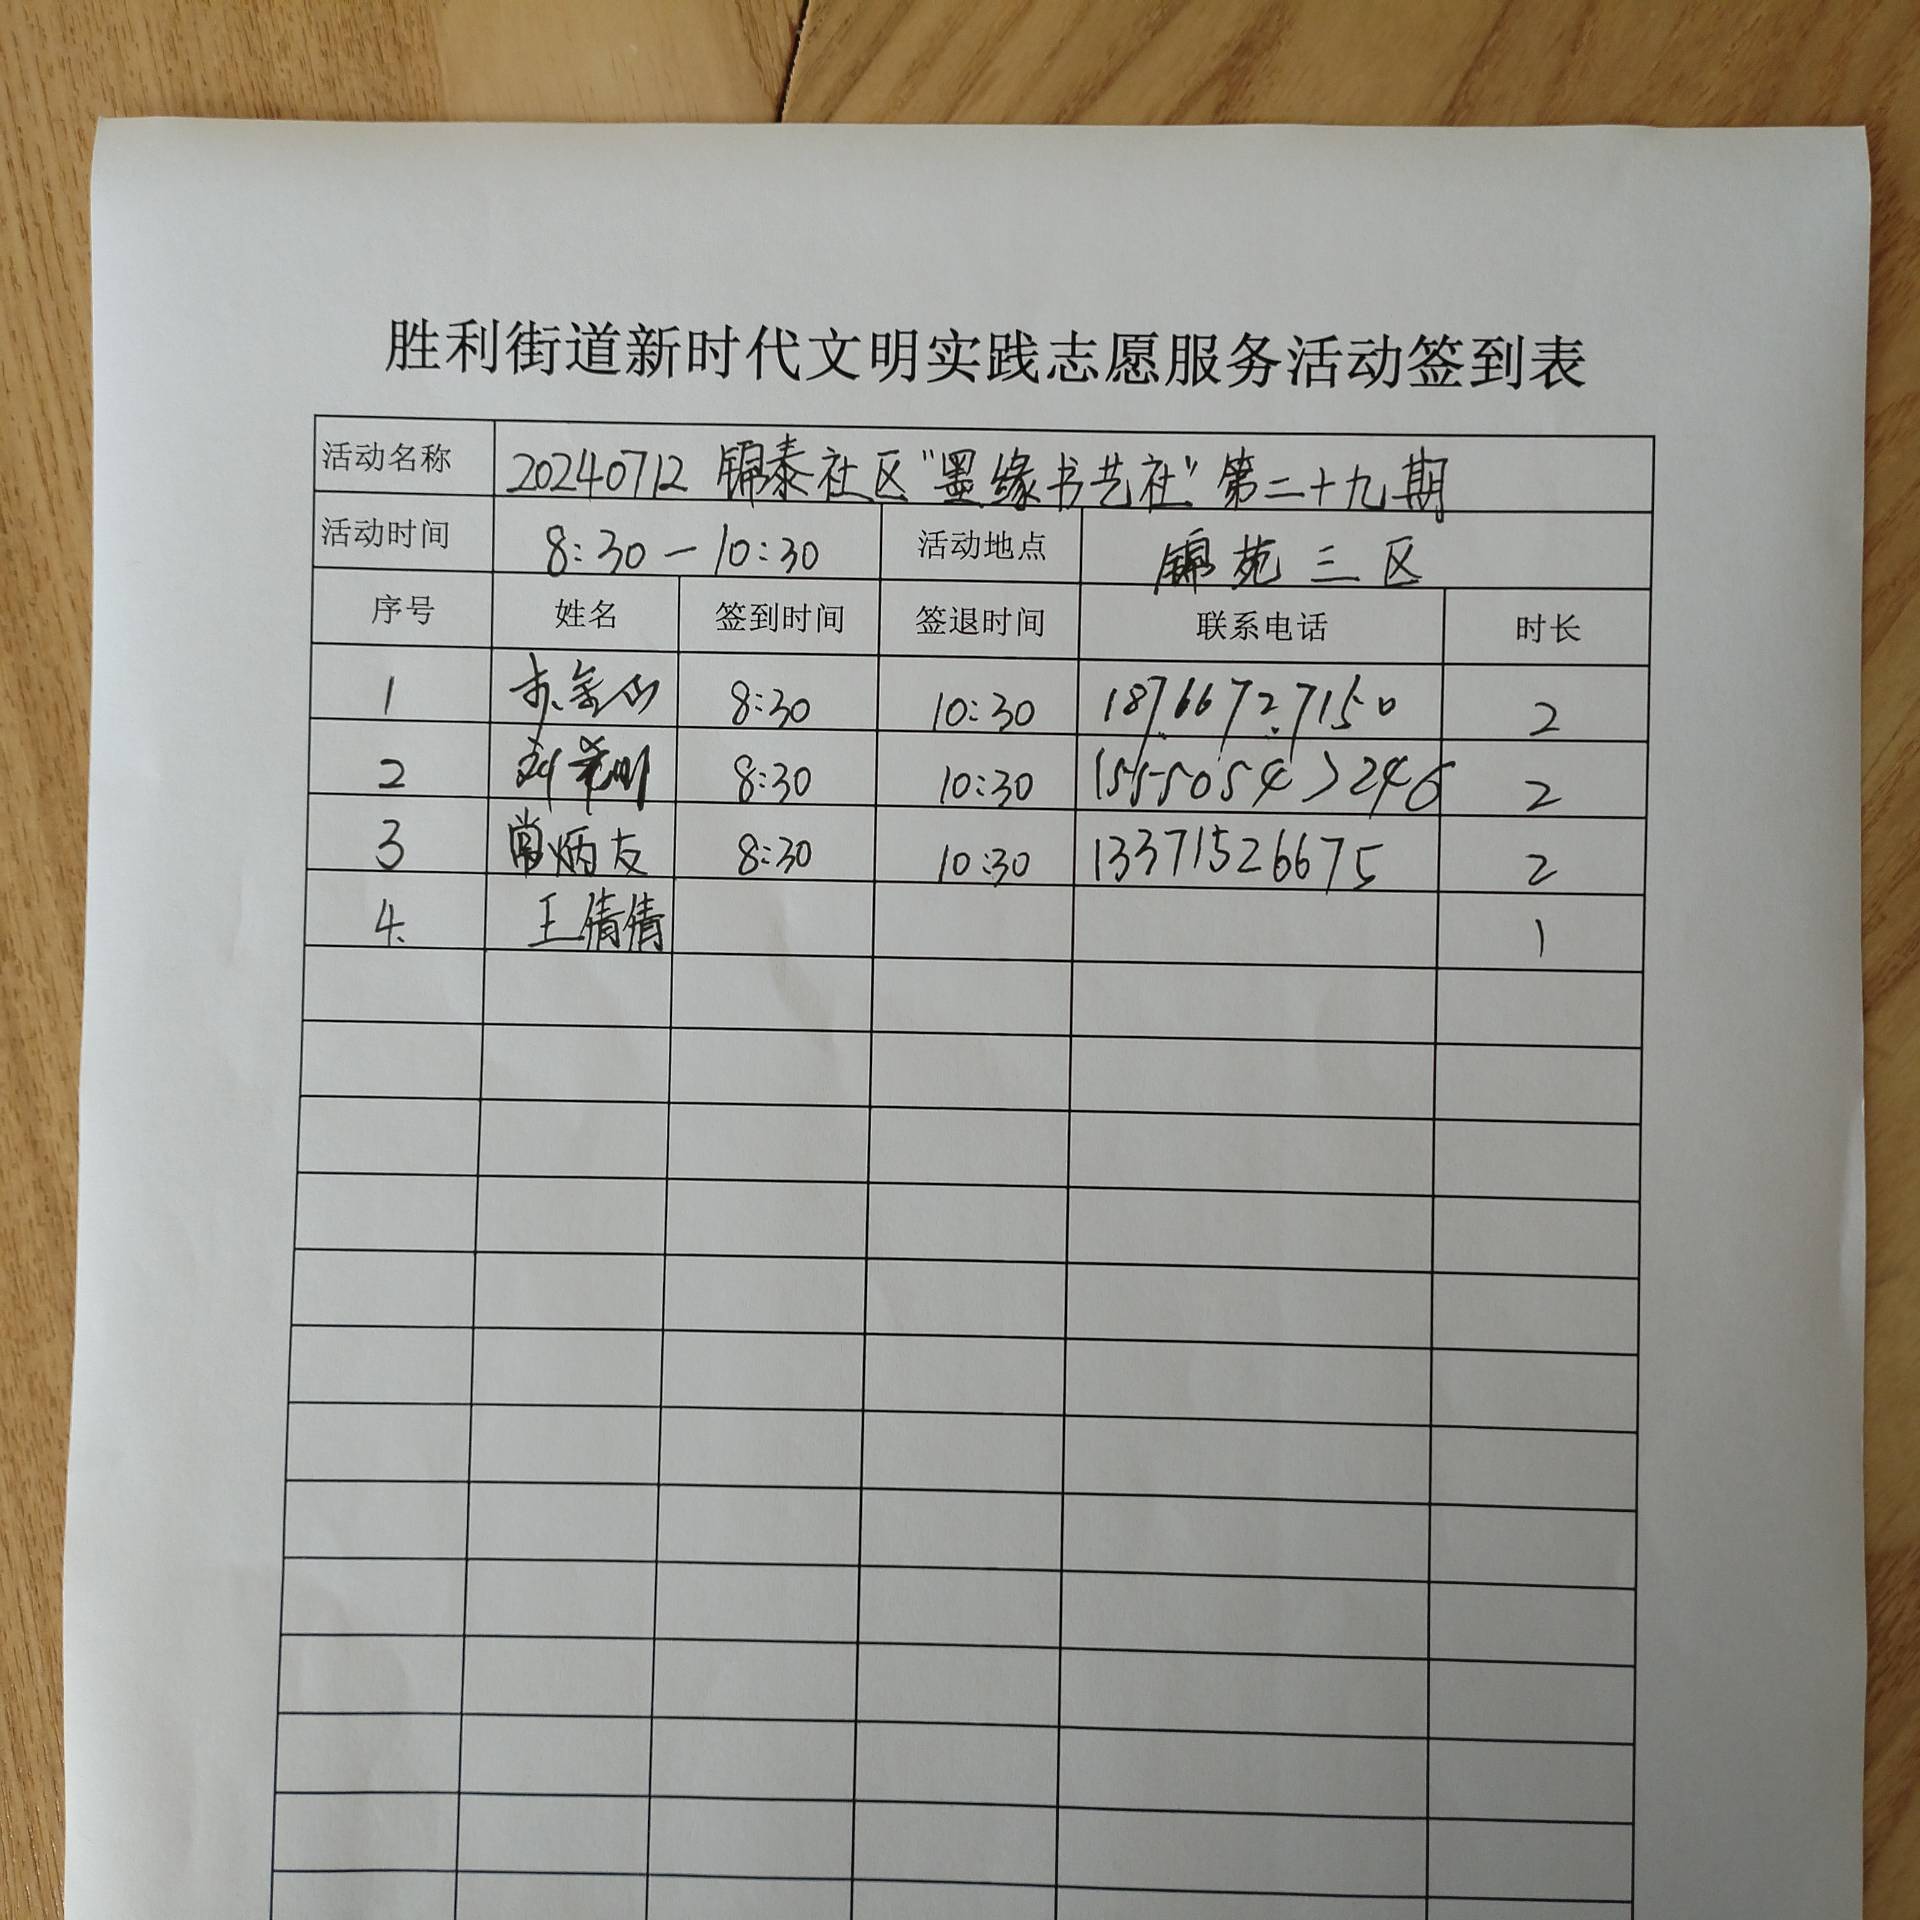 胜利街道新时代文明实践志愿服务活动签到表
活动名称 20240712 锦泰社区“墨缘书艺社”第二十九期
活动时间 8:30—10:30 活动地点 锦苑三区
序号 姓名 签到时间 签退时间 联系电话 时长
1 8:30 10:30 18766727150 2
2 8:30 10:30 2
3 常炳友 8:30 10:30 13371526675 2
4. 王倩倩 1